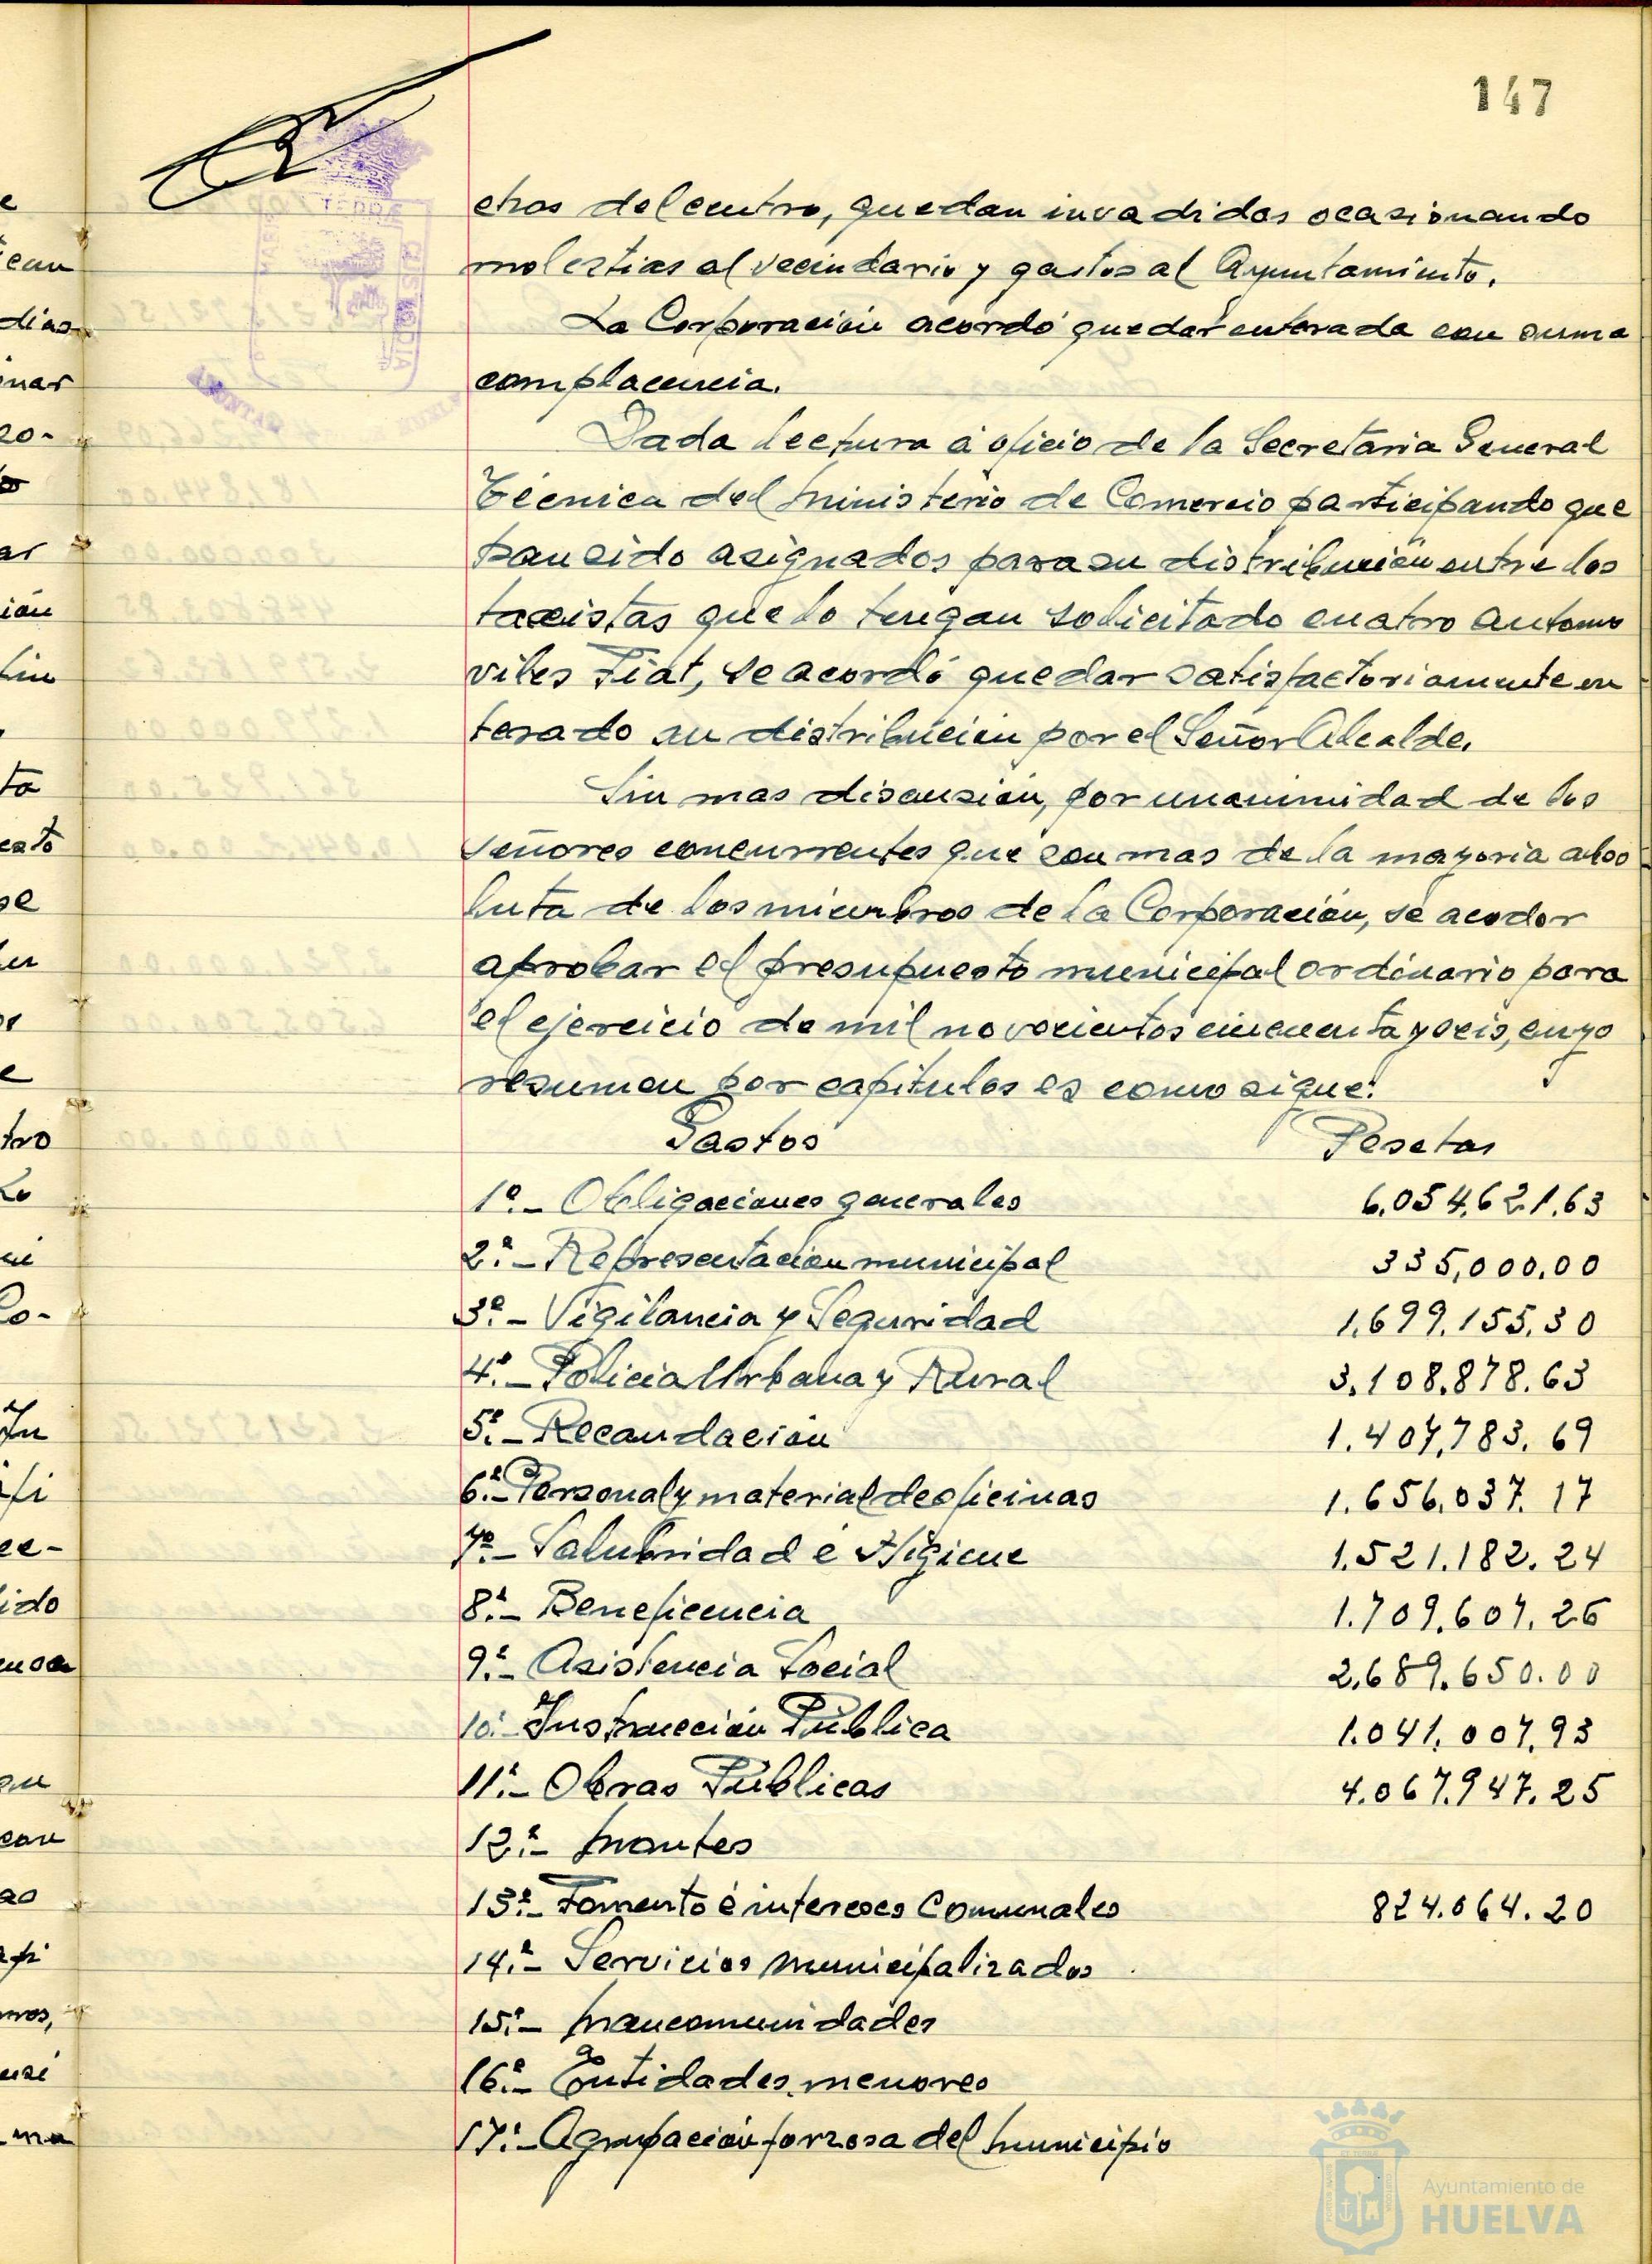 147
chos del centro, quedan invadidos ocasionando
molestias al vecindario y gastos al Ayuntamiento.
La Corporación acordó quedar enterada con suma
complacencia.
Dada lectura á oficio de la Secretaria General
Técnica del Ministerio de Comercio participando que
han sido asignados para su distribución entre los
taxistas que lo tengan solicitado cuatro automo
viles Fiat, se acordó quedar satisfactoriamente en
terado su distribución por el Señor Alcalde.
Sin mas discusión, por unanimidad de los
señores concurrentes que son mas de la mayoria abso
luta de los miembros de la Corporación, se acodor
aprobar el presupuesto municipal ordinario para
el ejercicio de mil novocientos cincuenta y seis, cuyo
resumen por capitulos es como sigue:
Gastos Pesetas
1º.- Obligaciones generales 6.054.621.63
2º.- Representacion municipal 335.000.00
3º.- Vigilancia y Seguridad 1.699.155.30
4º.- Policia Urbana y Rural 3.108.878.63
5º.- Recaudación 1.407.783.69
6º.- Personal y material de oficinas 1.656.037.17
7º.- Salubridad é Higiene 1.521.182.24
8º.- Beneficencia 1.709.607.26
9º.- Asistencia Social 2.689.650.00
10º.- Instrucción Pública 1.041.007.93
11º.- Obras Públicas 4.067.947.25
12º.- Montes
13º.- Fomento é intereses Comunales 824.064.20
14º.- Servicios municipalizados
15º.- Mancomunidades
16º.- Entidades menores
17º.- Agrupación forzosa del Municipio
Ayuntamiento de
HUELVA